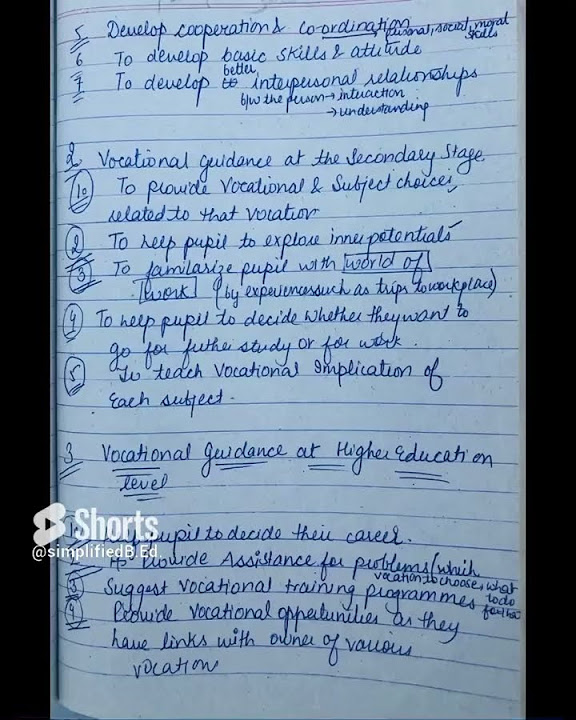 5 Develop cooperation & co-ordination personal, social, moral skills
6 To develop basic skills & attitude
7 To develop better interpersonal relationships
b/w the person → interaction
→ understanding
2 Vocational guidance at the Secondary Stage.
1. To provide Vocational & Subject choices,
related to that vocation
2 To help pupil to explore inner potentials
3 To familarize pupil with world of
work (by experiences such as trips to workplace)
4 To help pupil to decide whether they want to
go for futher study or for work.
5 To teach Vocational Implication of
each subject.
3 Vocational guidance at Higher Education
level
1 pupil to decide their career.
Shorts
@simplifiedB.Ed.
Provide Assistance for problems (which
vocation to choose, what to do further
3 Suggest vocational training programmes
4 Provide vocational oppertunities as they
have links with owner of various
vocation